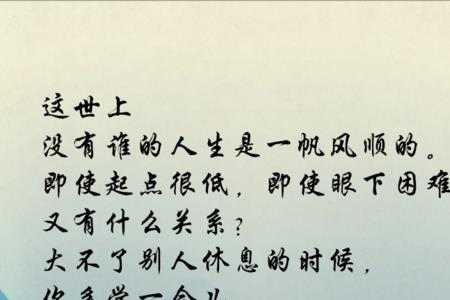 这世上
没有谁的人生是一帆风顺的。
即使起点很低，即使眼下困难
又有什么关系？
大不了别人休息的时候，
你多学一会儿